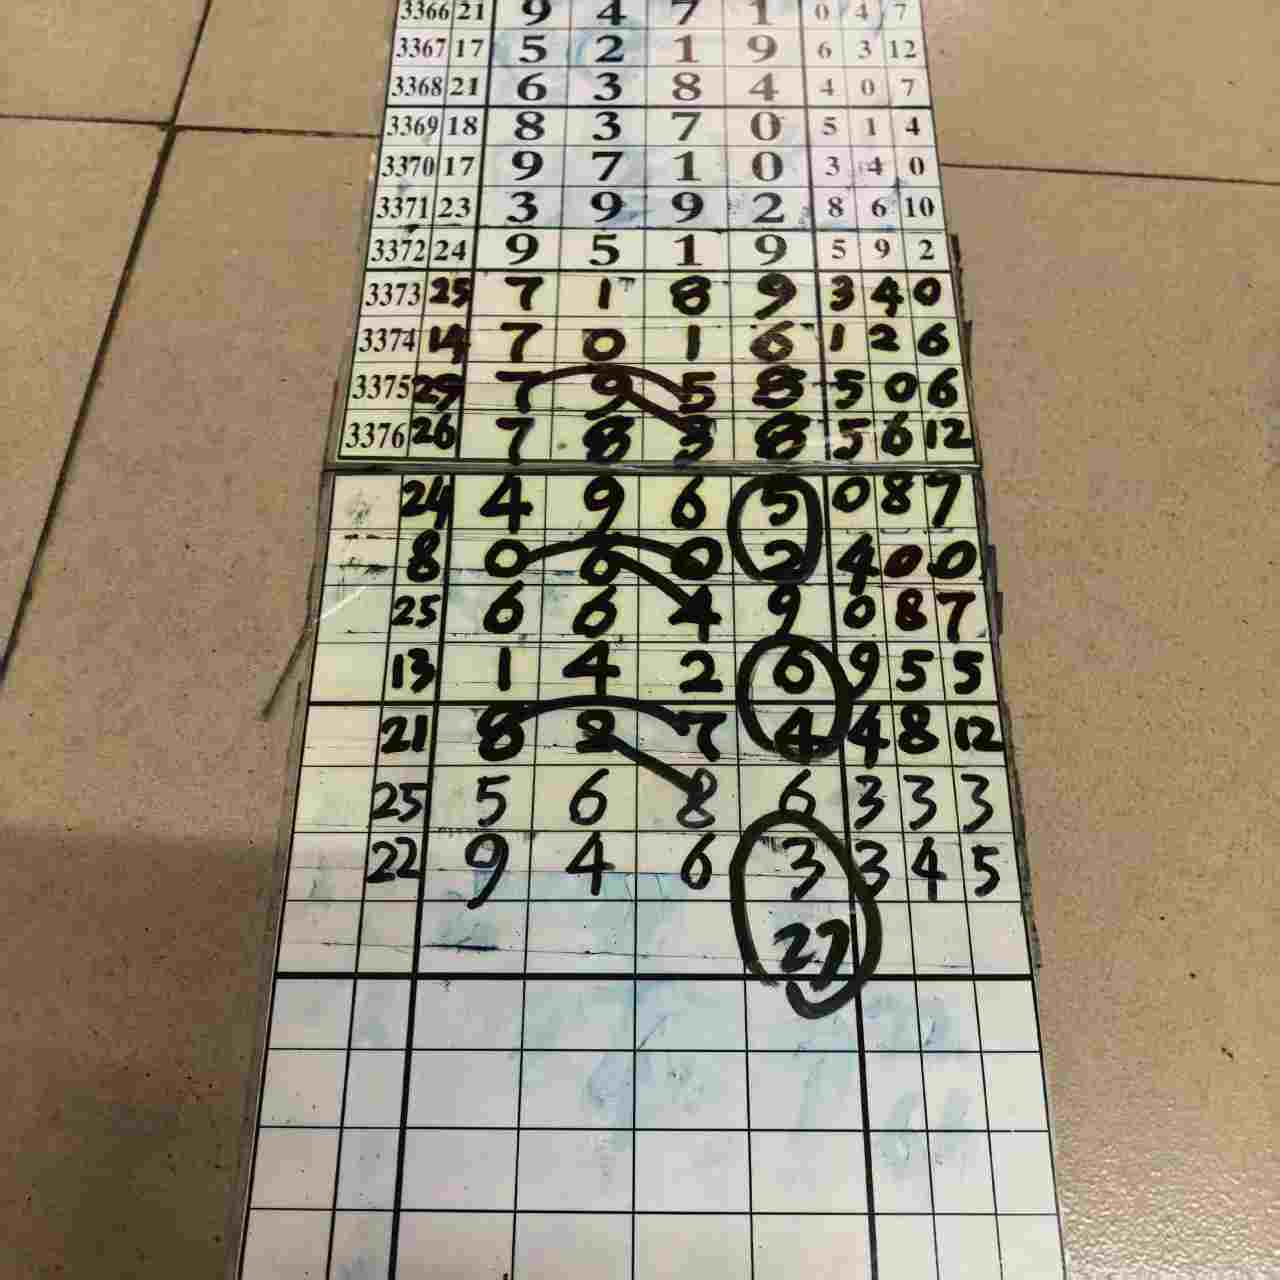 3366 21 9 4 7 1 0 4 7
3367 17 5 2 1 9 6 3 12
3368 21 6 3 8 4 4 0 7
3369 18 8 3 7 0 5 1 4
3370 17 9 7 1 0 3 4 0
3371 23 3 9 9 2 8 6 10
3372 24 9 5 1 9 5 9 2
3373 25 7 1 8 9 3 4 0
3374 14 7 0 1 6 1 2 6
3375 29 7 9 5 8 5 0 6
3376 26 7 8 3 8 5 6 12
24 4 9 6 5 0 8 7
8 0 6 0 2 4 0 0
25 6 6 4 9 0 8 7
13 1 4 2 6 9 5 5
21 8 2 7 4 4 8 12
25 5 6 8 6 3 3 3
22 9 4 6 3 3 4 5
27